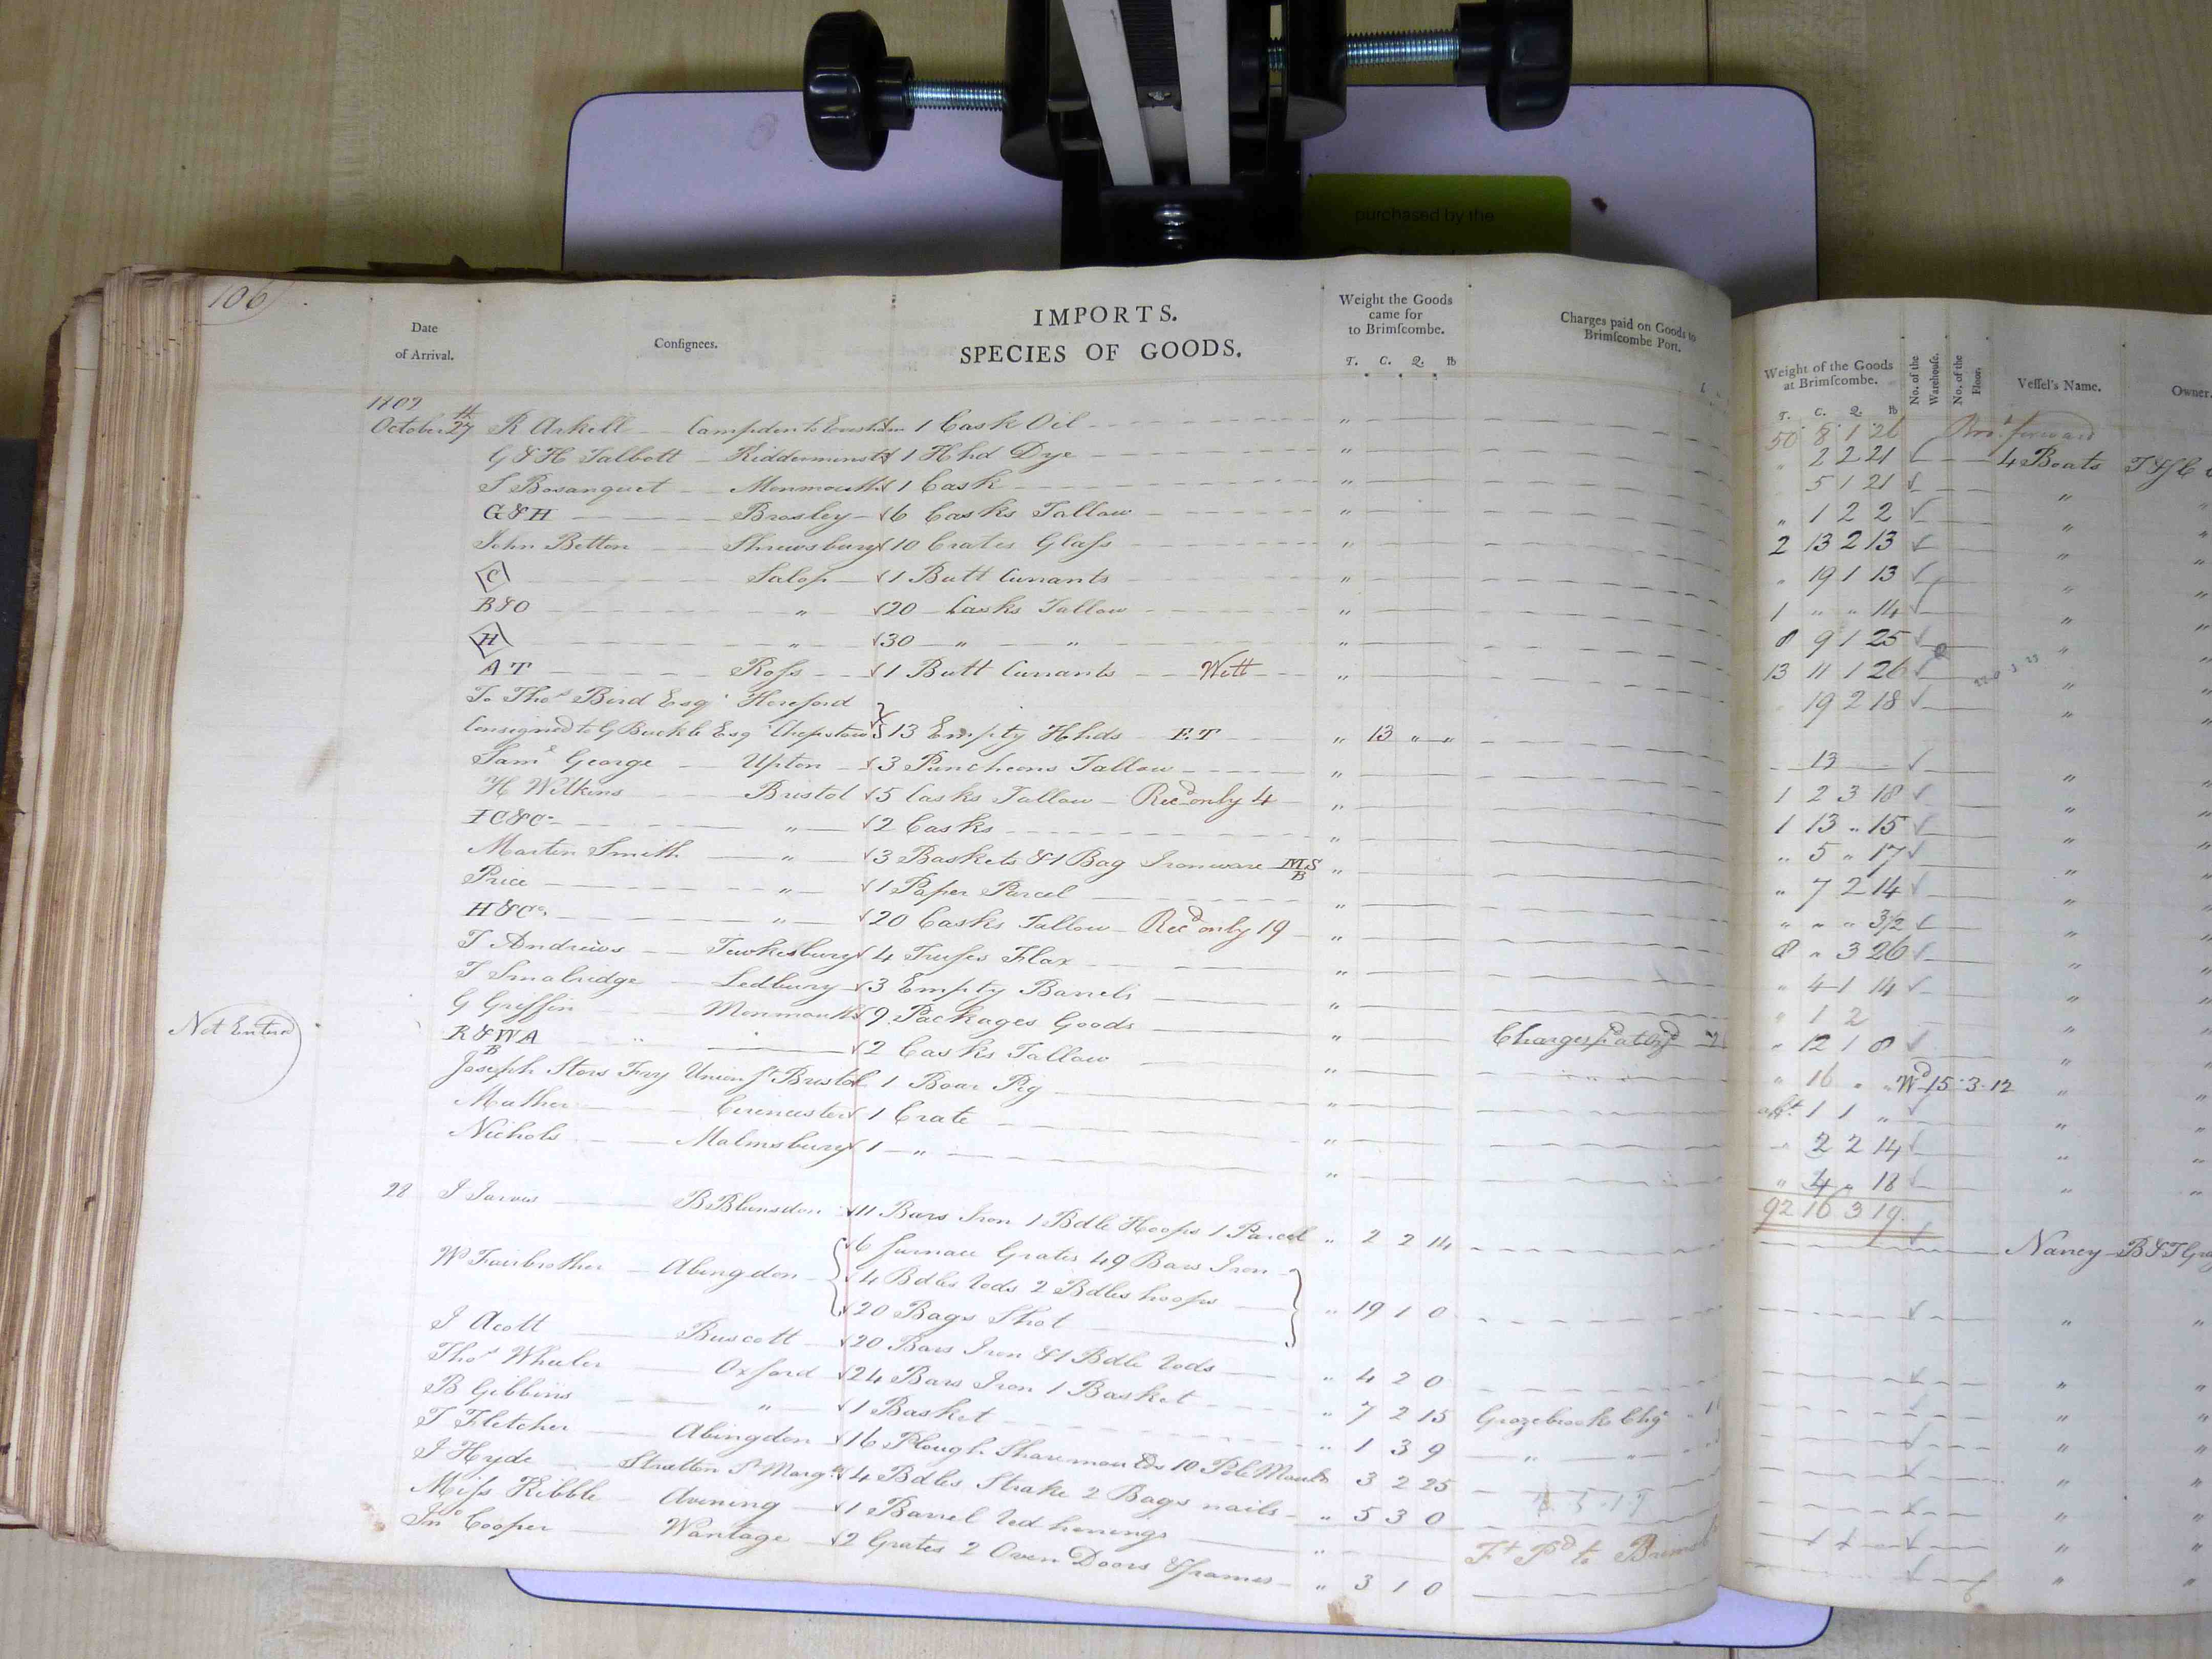 purchased by the
106
Date
of Arrival.
Confignees.
IMPORTS.
SPECIES OF GOODS.
Weight the Goods
came for
to Brimſcombe.
T. C. Q. lb
Charges paid on Goods to
Brimſcombe Port.
Weight of the Goods
at Brimſcombe.
T. C. Q. lb
No. of the
Warehouſe.
No. of the
Floor.
Veſſel's Name.
Owner.
50 8 1 26 Bro.t forward
1809
October 27th R Arkell Campden to Evesham 1 Cask Oil " " 2 2 21 4 Boats
G & H Talbott Kidderminster 1 Hhd Dye " 5 1 21 "
S Bosanquet Monmouth 1 Cask " " 1 2 2 "
G&H Brosley 6 Casks Tallow " 2 13 2 13 "
John Betton Shrewsbury 10 Crates Glaſs " " 19 1 13 "
C Salop 1 Butt Currants " 1 " " 14 "
B&O " 20 Casks Tallow " 8 9 1 25 "
H " 30 " " " 13 11 1 26 "
AT Roſs 1 Butt Currants Wett " 19 2 18 "
To Thos Bird Esqr Hereford
Consigned to G Buckle Esq Chepstow 13 Empty Hhds ET " 13 " " 13 "
Saml George Upton 3 Puncheons Tallow " 1 2 3 18 "
H Wilkins Bristol 5 Casks Tallow Recd only 4 " 1 13 " 15 "
IC&Co " 2 Casks " " 5 " 17 "
Martin Smith " 3 Baskets & 1 Bag Ironware MS B " " 7 2 14 "
Price " 1 Paper Parcel " " " " 3½ "
H&Co. " 20 Casks Tallow Recd only 19 " 8 " 3 26 "
T Andrews Tewkesbury 4 Truſses Flax " " 4 1 14 "
T Smalridge Ledbury 3 Empty Barrels " " 1 2 "
G Griffin Monmouth 9 Packages Goods " Charges " 12 1 8 "
R&WA B " 2 Casks Tallow " " 16 " " Wd 15 3 12 "
Not Entered
Joseph Stors Fry Union St Bristol 1 Boar Pig " 1 1 " "
Mather Cirencester 1 Crate " " 2 2 14 "
Nichols Malmsbury 1 " " " 4 " 18 "
92 16 3 19
28 J Jarvis B Blunsdon 11 Bars Iron 1 Bdle Hoops 1 Parcel " 2 2 14 Nancy
6 furnace Grates 49 Bars Iron
W Fairbrother Abingdon 4 Bdles rods 2 Bdles hoops " 19 1 0 "
20 Bags Shot
J Acott Buscott 20 Bars Iron & 1 Bdle rods " 4 2 0 "
Thos Wheeler Oxford 24 Bars Iron 1 Basket " 7 2 15 Grazebrooks Chgs "
B Gibbins " 1 Basket " 1 3 9 " " "
T Fletcher Abingdon 16 Plough Sharemoulds 10 Pole Moulds 3 2 25 "
J Hyde Stratton St Margts 4 Bdles Strake 2 Bags nails " 5 3 0 "
Miſs Kibble Avening 1 Barrel red herrings " Ft Pd to "
Jno Cooper Wantage 2 Grates 2 Oven Doors & frames " 3 1 0 "